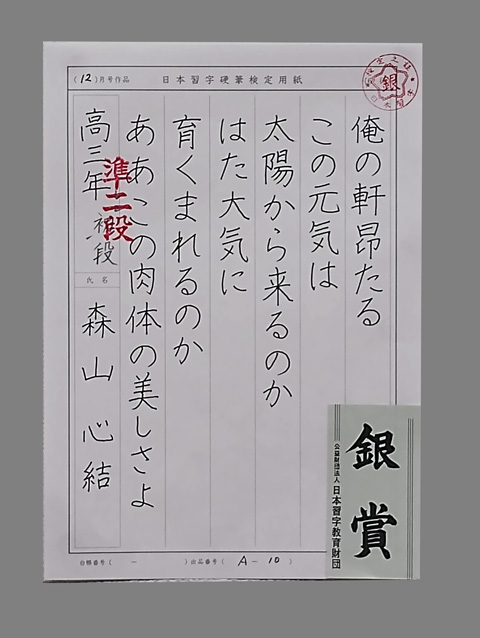 (12)月号作品 日本習字硬筆検定用紙
銀
日本習字
俺の軒昂たる
この元気は
太陽から来るのか
はた大気に
育くまれるのか
ああこの肉体の美しさよ
高三年 初段
準二段
氏名
森山心結
(ー)出品番号(A-10)
銀賞
公益財団法人 日本習字教育財団